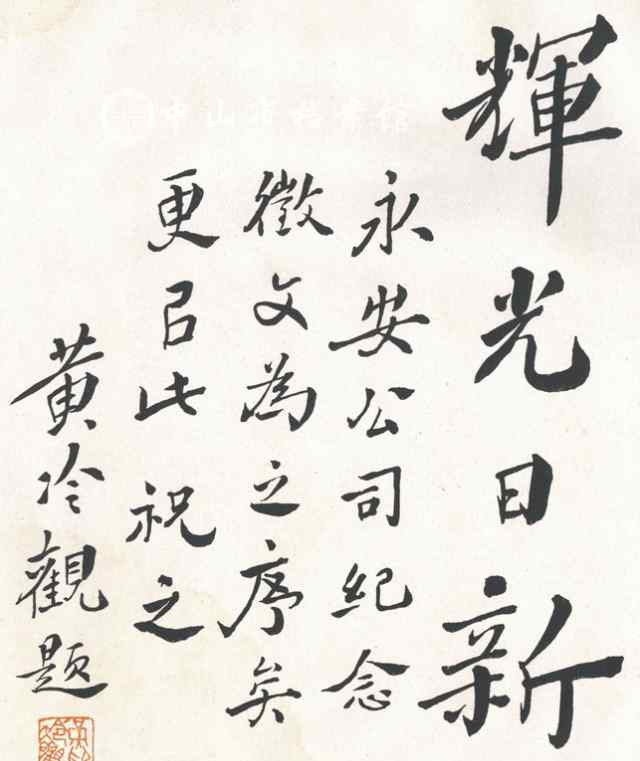 輝光日新
永安公司紀念
徵文為之序矣
更㠯此祝之
黃冷觀題
中山市档案馆